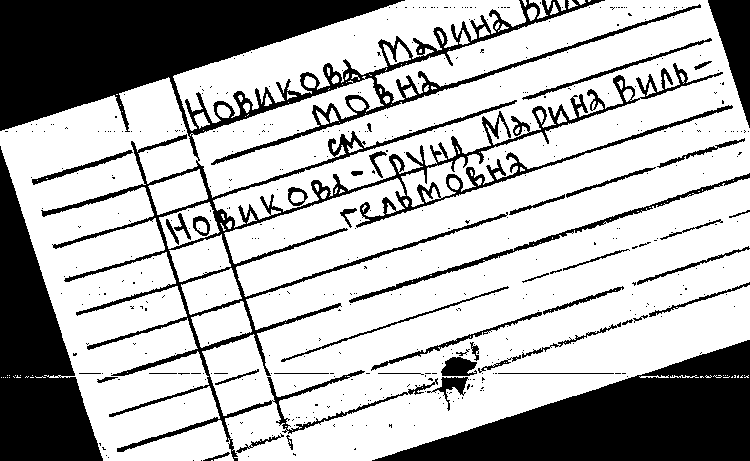 Новикова Марина
мовна
см:
Новикова-Грунд, Марина Виль-
гельмовна